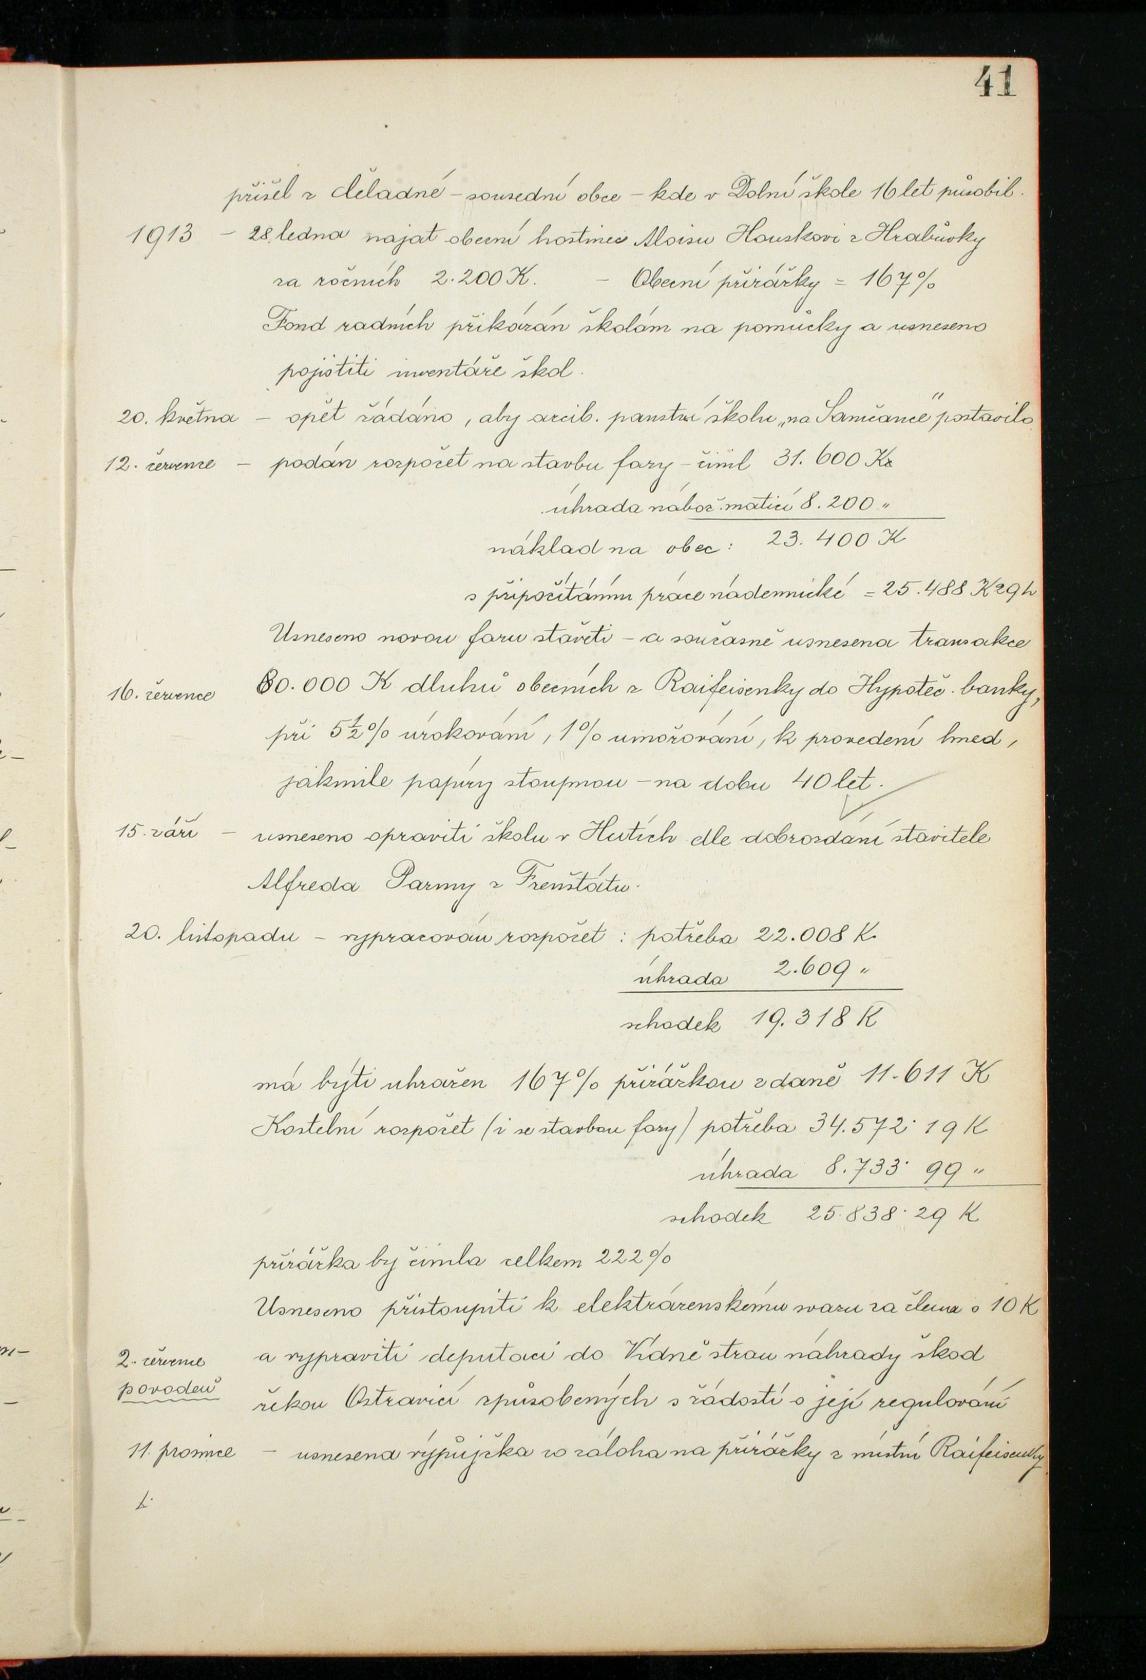 41
přišel z Čeladné – sousední obce – kde v Dolní škole 16 let působil.
1913 – 28. ledna najat obecní hostinec Aloisu Houskovi z Hrabůvky
za ročních 2.200 K. – Obecní přirážky = 167%
Fond radních přikázán školám na pomůcky a usneseno
pojistiti inventáře škol.
20. května – opět žádáno, aby arcib. panství školu „na Samčance" postavilo
12. července – podán rozpočet na stavbu fary – činil 31.600 K
úhrada nábož. maticí 8.200 "
náklad na obec: 23.400 K
s připočítáním práce nádennické = 25.488 K 29 h
Usneseno novou faru stavěti – a současně usnesena transakce
16. července 80.000 K dluhů obecních z Raifeisenky do Hypoteč. banky,
při 5½% úrokování, 1% umořování, k provedení hned,
jakmile papíry stoupnou – na dobu 40 let.
15. září – usneseno opraviti školu v Hutích dle dobrozdání stavitele
Alfreda Parmy z Frenštátu.
20. listopadu – vypracován rozpočet: potřeba 22.008 K.
úhrada 2.609 "
schodek 19.318 K
má býti uhražen 167% přirážkou z daně 11.611 K
Kostelní rozpočet (i se stavbou fary) potřeba 34.572· 19 K
úhrada 8.733· 99 "
schodek 25.838· 29 K
přirážka by činila celkem 222%
Usneseno přistoupiti k elektrárenskému svazu za člena s 10 K
2. července a vypraviti deputaci do Vídně stran náhrady škod
povodeň řekou Ostravicí způsobených s žádostí o její regulování
11. prosince – usnesena výpůjčka co záloha na přirážky z místní Raifeisenky